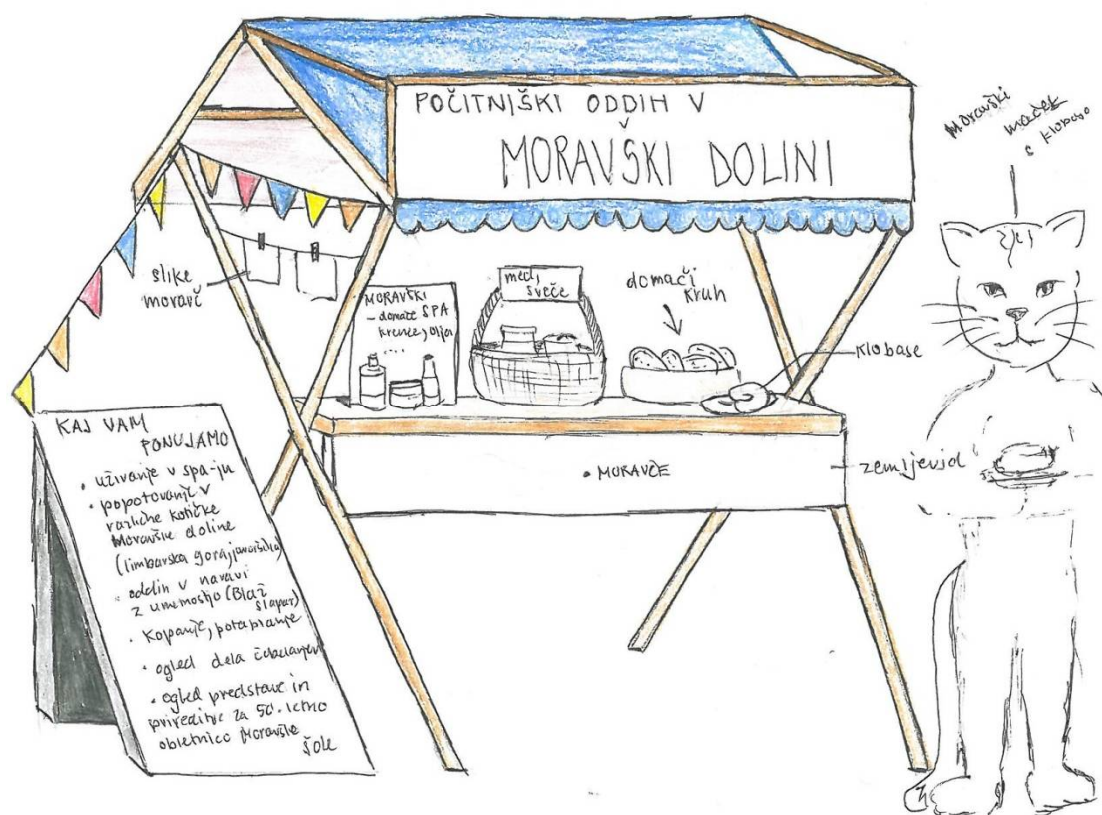 POČITNIŠKI ODDIH V
MORAVŠKI DOLINI
Moravški
maček
s klobaso
slike
moravč
MORAVŠKI
- domače SPA
kreme, olja
....
med,
sveče
domači
kruh
klobase
zemljevid
• MORAVČE
KAJ VAM
PONUJAMO
• uživanje v spa-ju
• popotovanje v
različne kotičke
Moravške doline
(limbarska gora,
• oddih v naravi
z umetnostjo (Blaž
šlapar)
• Kopanje, potapljanje
• ogled dela
• ogled predstave in
prireditve za 50-letno
obletnico Moravške
šole